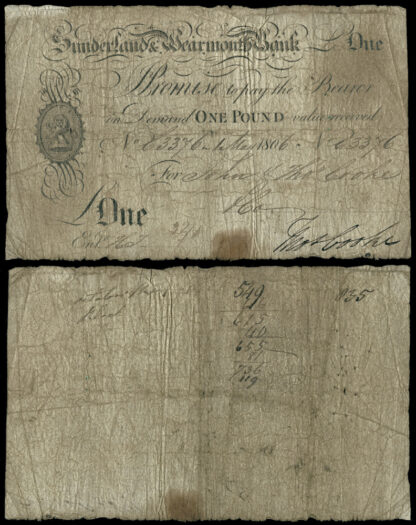 Sunderland & Wearmouth Bank £ One
I Promise to pay the Bearer
on Demand ONE POUND value received
No 85376 1 May 1806 No 85376
For John & Thos Cooke
& Co
£ One
Entd
Thos Cooke
549 835
40
655
736
119